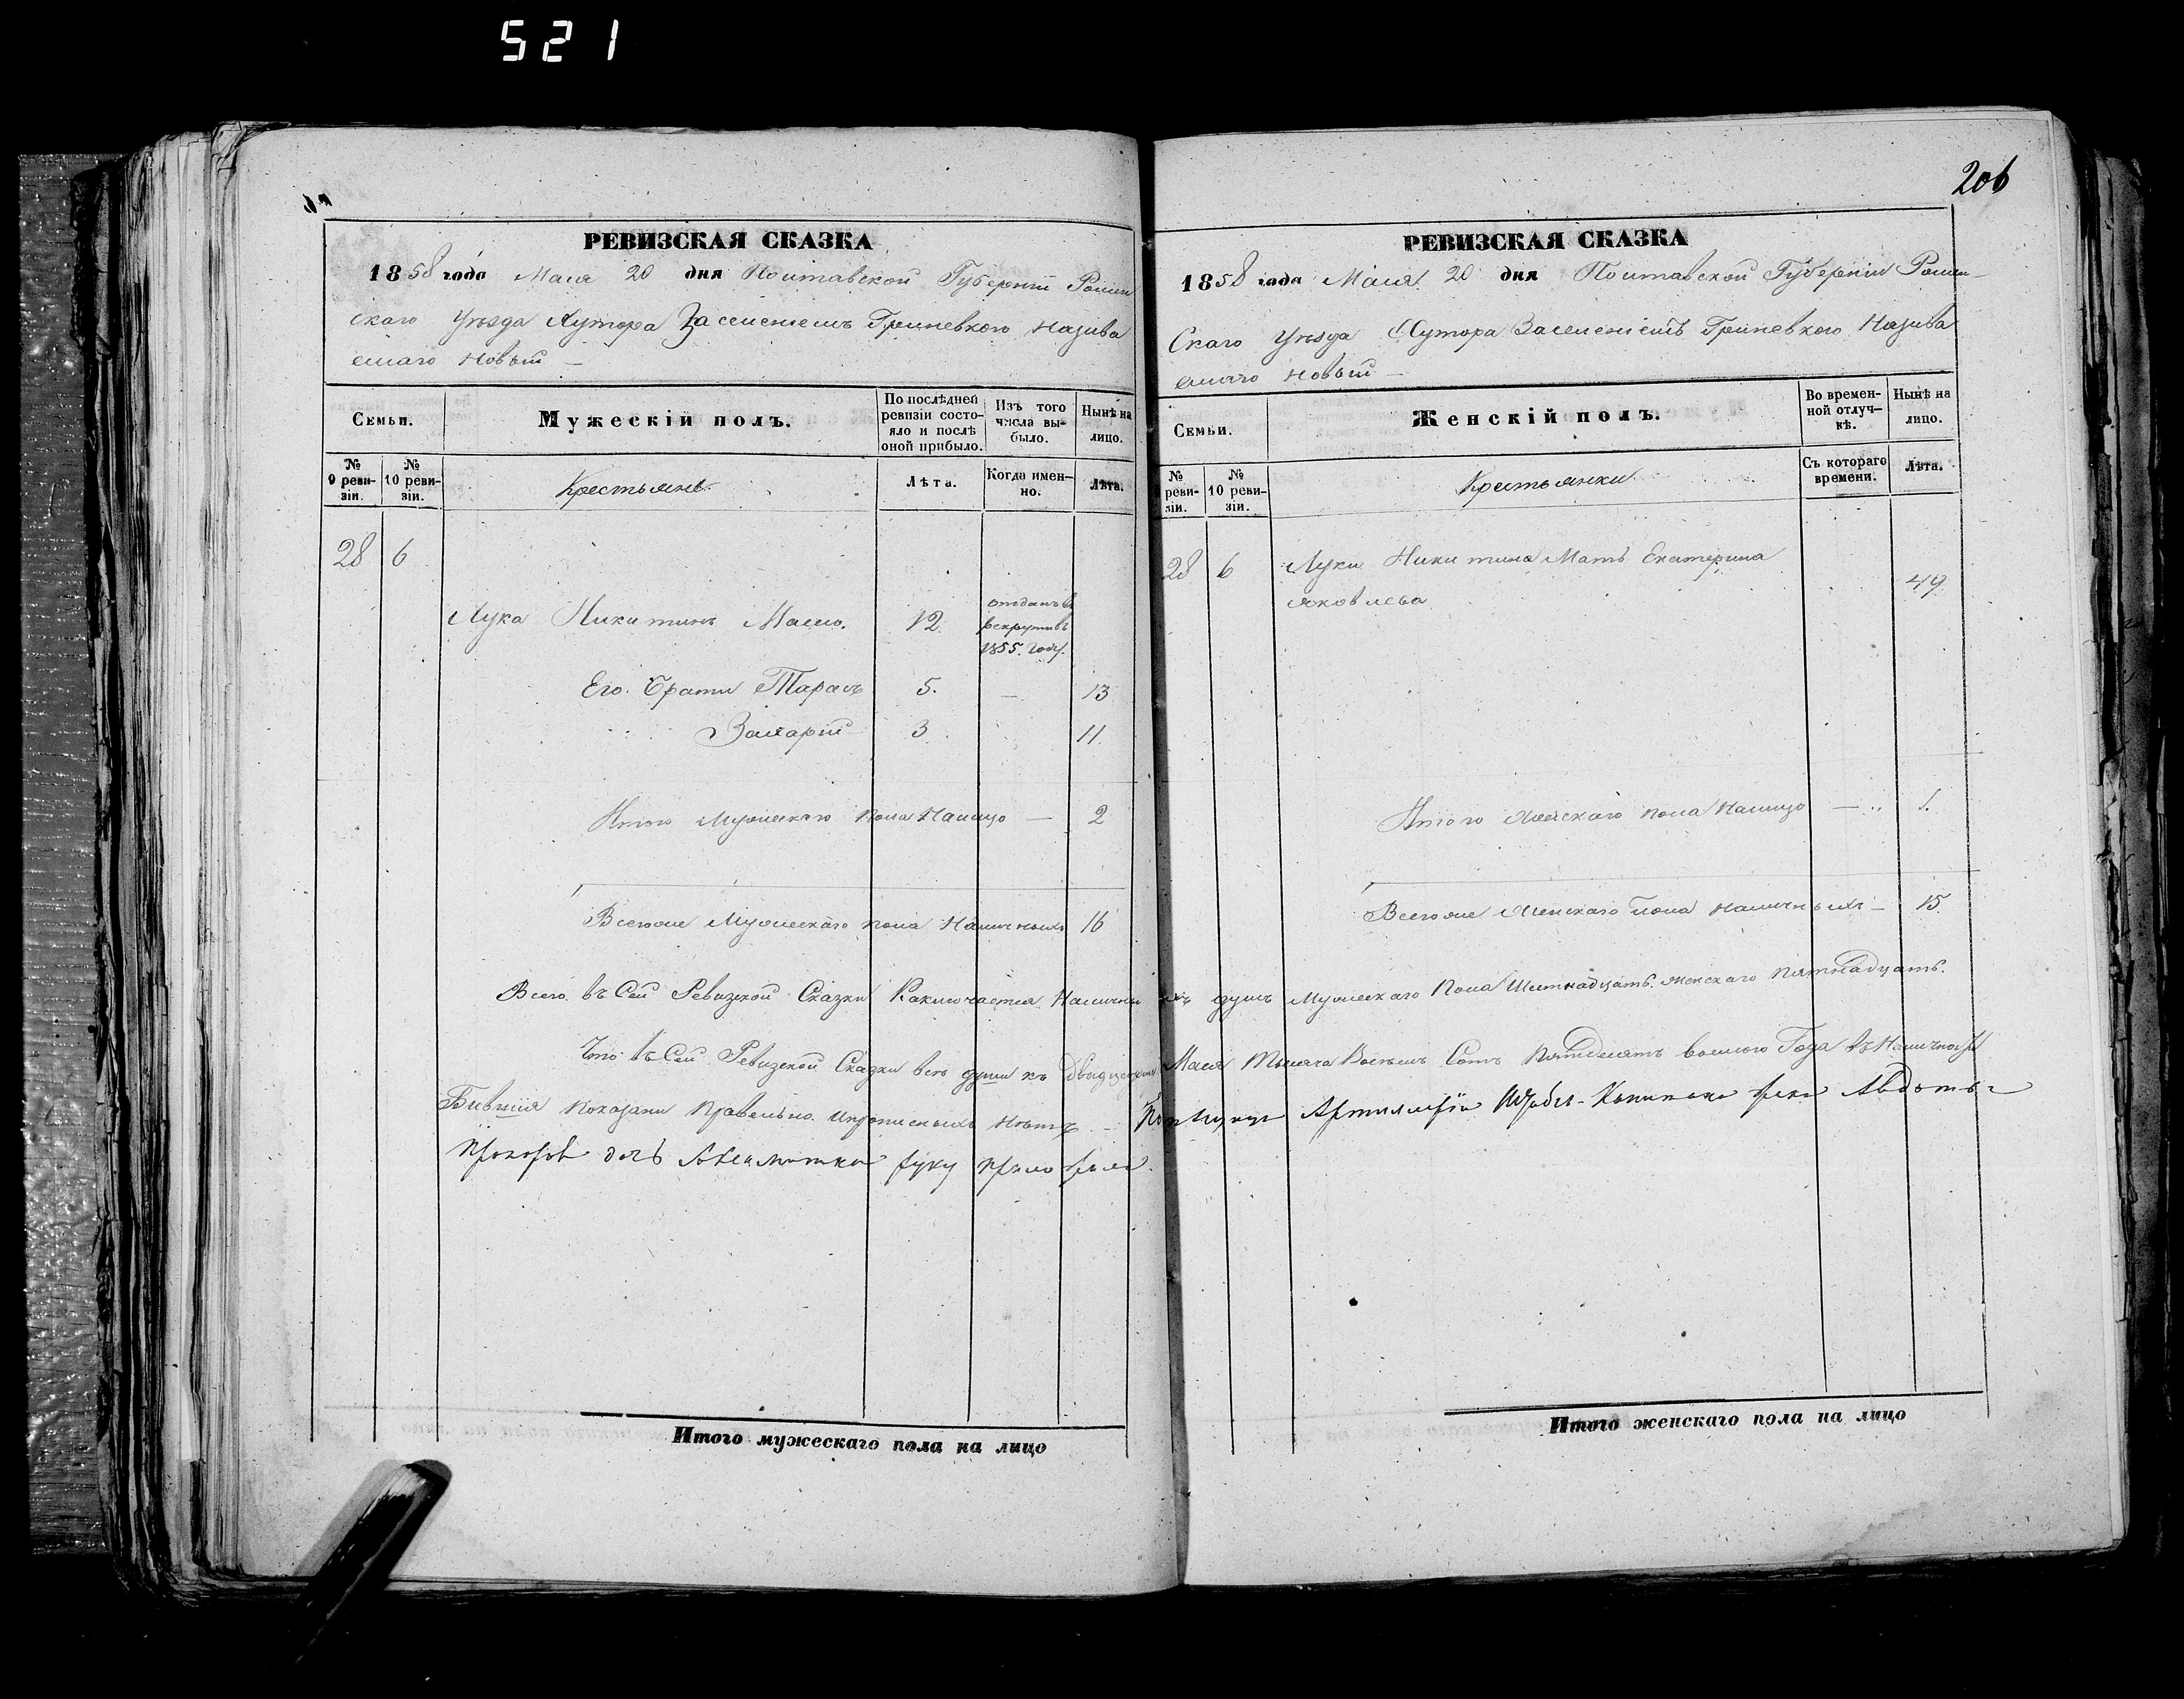 521
206
РЕВИЗСКАЯ СКАЗКА
1858 года Маия 20 дня Полтавской Губерніи Ромен
скаго Уезда Хутора Заселеніемъ Гриневкого Назива
емаго Новый —
Семьи.
Мужескій полъ.
По послѣдней ревизіи состо-
яло и послѣ
оной прибыло.
Изъ того
числа вы-
было.
Нынѣ на
лицо.
№
9 реви-
зіи.
№
10 реви-
зіи.
Крестьяне.
Лѣта.
Когда имен-
но.
Лѣта.
28 6
Лука Никитинъ 12. отданъ в
рекрути въ
1855. году.
Его. Брати Тарасъ 5. — 13
Захарій 3 11.
Итого Мужескаго пола Налицо — 2
Всегоже Мужескаго пола Наличныхъ 16
РЕВИЗСКАЯ СКАЗКА
1858 года Маия 20 дня Полтавской Губерніи Ромен-
Скаго Уезда Хутора Заселеніемъ Гриневкого Назива
емаго Новый —
Семьи.
Женскій полъ.
Во времен-
ной отлуч-
кѣ.
Нынѣ на
лицо.
№
реви-
зіи.
№
10 реви-
зіи.
Крестьянки
Съ котораго
времени.
Лѣта.
28 6 Луки Никитина Мать Екатерина
Яковлева 49
Итого Женскаго пола Налицо — 1.
Всегоже Женскаго пола Наличныхъ — 15.
Всего въ Сей Ревизской Сказки Заключается Наличныхъ душъ Мужескаго Пола Шестнадцать. женскаго пятнадцать.
Что въ Сей Ревизской Сказки всѣ души къ Двадцятому Маия Тысяча Восемь Сотъ Пятдесятъ восмого Года въ Наличности
Бившия показани Правельно. и прописныхъ Нѣтъ. — Артиллеріи Штабсъ-Капитана Авдотья
Прохорова дочь руку приложила.
Итого мужескаго пола на лицо
Итого женскаго пола на лицо